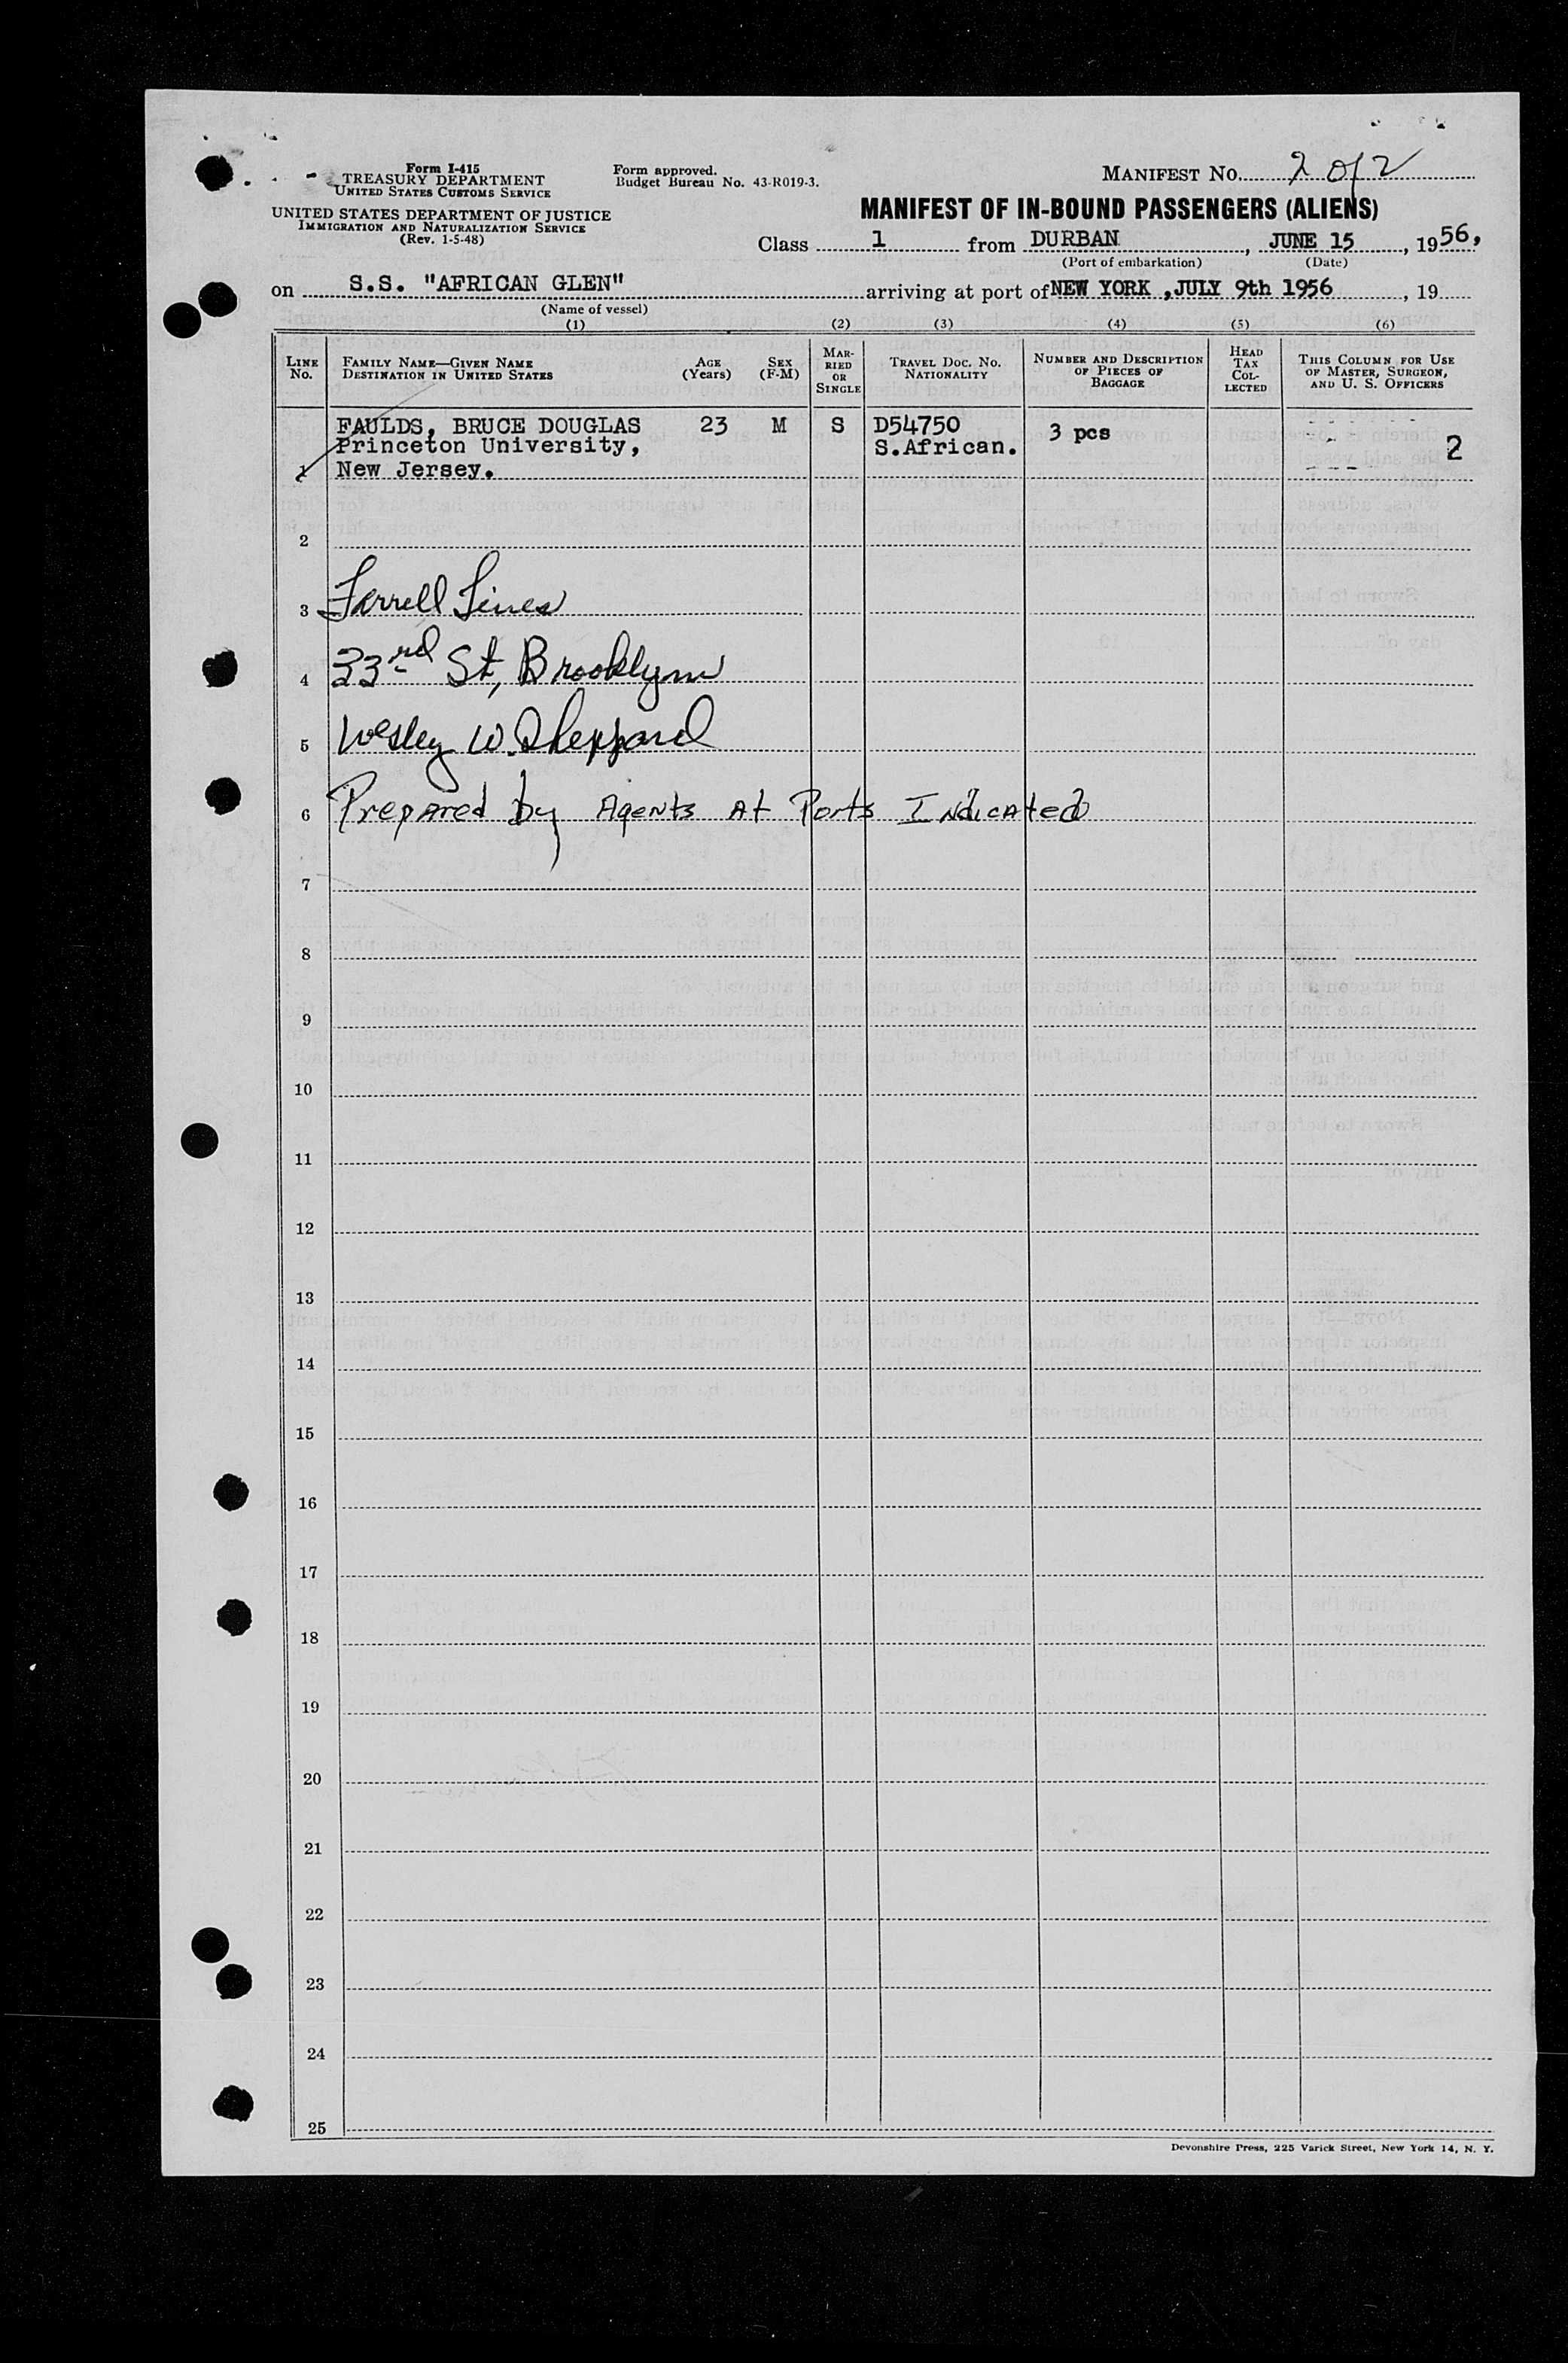 Form I-415
TREASURY DEPARTMENT
UNITED STATES CUSTOMS SERVICE
UNITED STATES DEPARTMENT OF JUSTICE
IMMIGRATION AND NATURALIZATION SERVICE
(Rev. 1-5-48)
Form approved.
Budget Bureau No. 43-R019-3.
MANIFEST No. 2 of 2
MANIFEST OF IN-BOUND PASSENGERS (ALIENS)
Class 1 from DURBAN, JUNE 15, 1956,
(Port of embarkation) (Date)
on S.S. "AFRICAN GLEN" arriving at port of NEW YORK ,JULY 9th 1956, 19
(Name of vessel)
(1) (2) (3) (4) (5) (6)
LINE No. FAMILY NAME—GIVEN NAME DESTINATION IN UNITED STATES AGE (Years) SEX (F-M) MARRIED OR SINGLE TRAVEL DOC. NO. NATIONALITY NUMBER AND DESCRIPTION OF PIECES OF BAGGAGE HEAD TAX COLLECTED THIS COLUMN FOR USE OF MASTER, SURGEON, AND U. S. OFFICERS
FAULDS, BRUCE DOUGLAS 23 M S D54750 3 pcs
Princeton University, S.African. 2
1 New Jersey.
2
3 Farrell Lines
4 33rd St, Brooklyn
5 Wesley W. Sheppard
6 Prepared by Agents At Ports Indicated
7
8
9
10
11
12
13
14
15
16
17
18
19
20
21
22
23
24
25
Devonshire Press, 225 Varick Street, New York 14, N. Y.